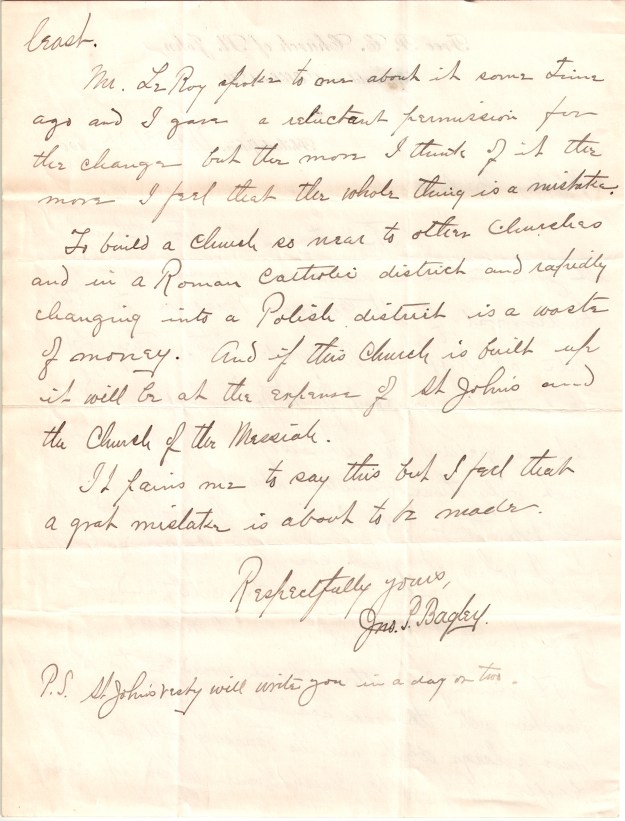 least.
Mr. Le Roy spoke to me about it some time
ago and I gave a reluctant permission for
the change but the more I think of it the
more I feel that the whole thing is a mistake.
To build a church so near to other Churches
and in a Roman Catholic district and rapidly
changing into a Polish district is a waste
of money. And if this church is built up
it will be at the expense of St John's and
the Church of the Messiah.
It pains me to say this but I feel that
a grat mistake is about to be made.
Respectfully yours,
Jno. P. Bagley.
P.S. St John's vestry will write you in a day or two.